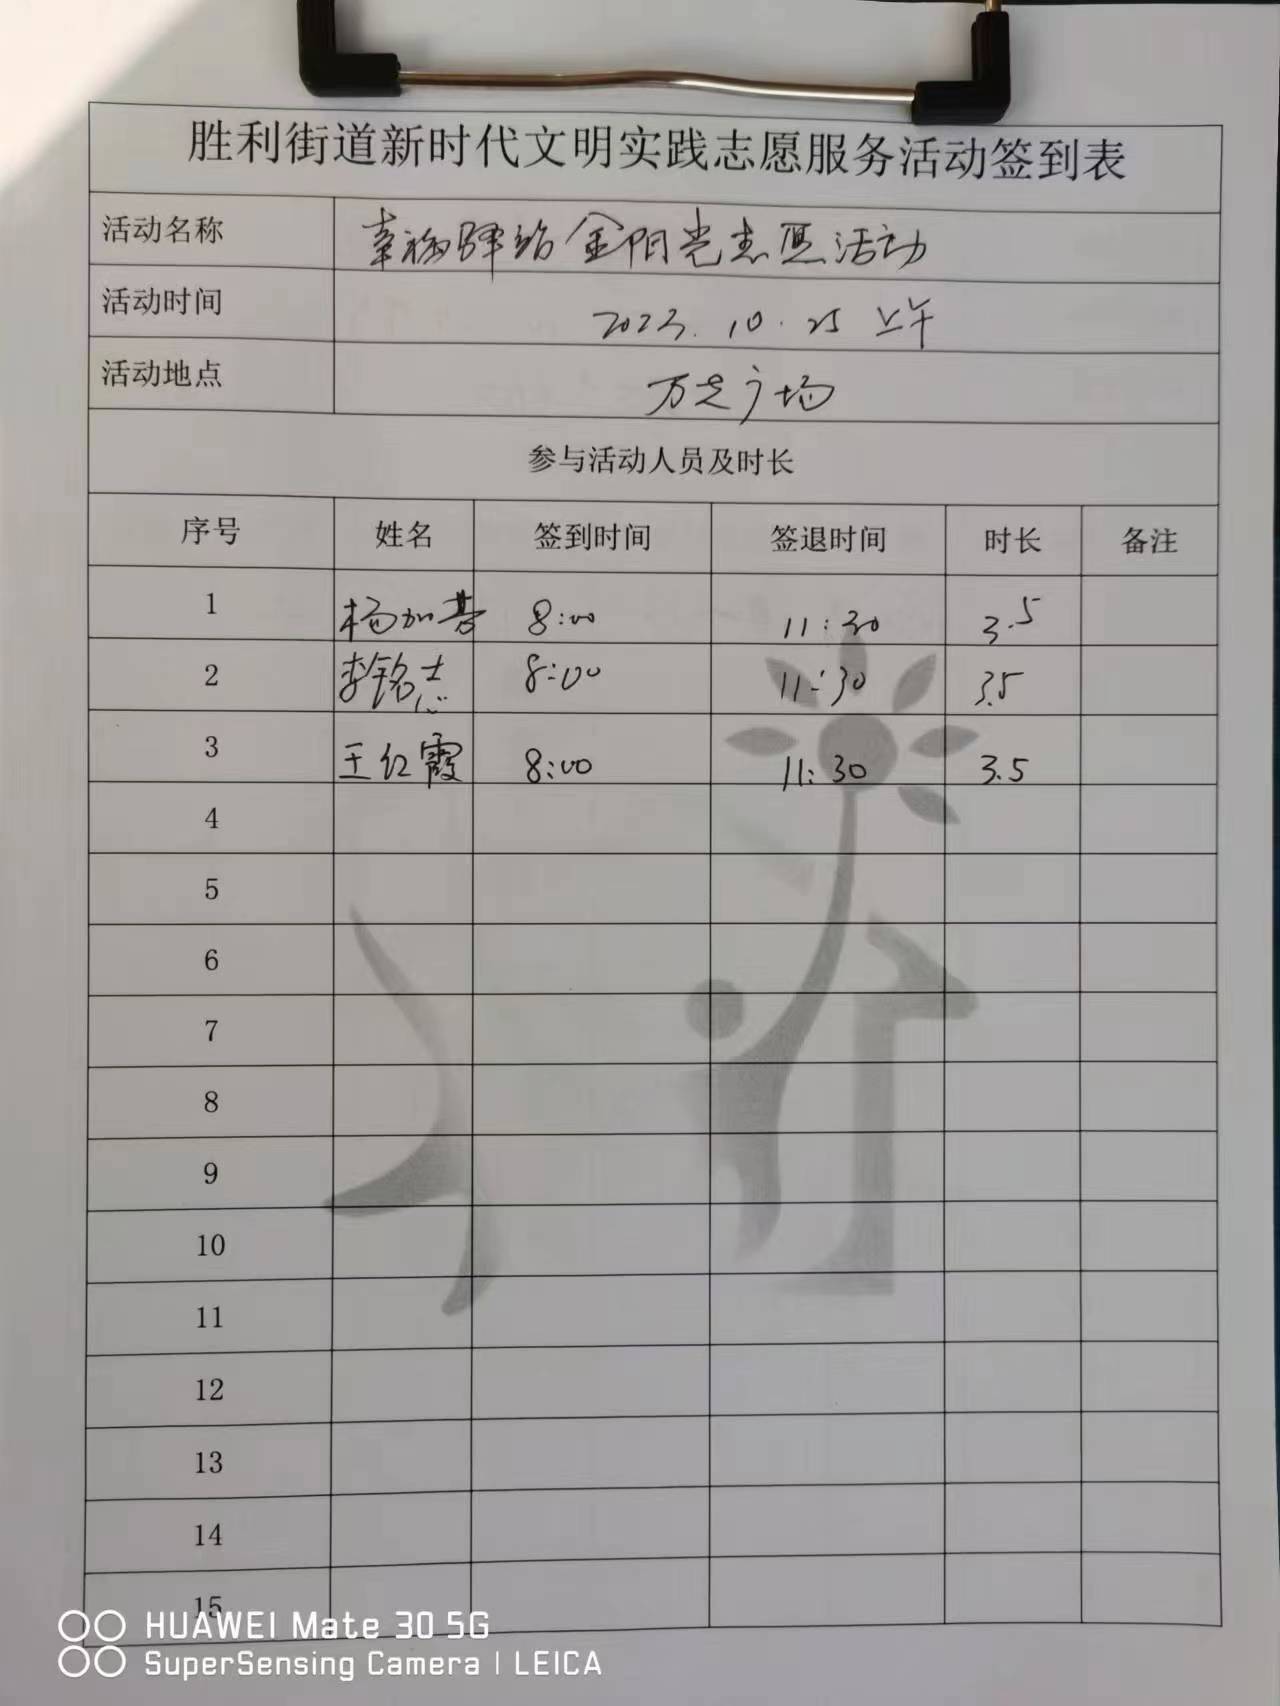 胜利街道新时代文明实践志愿服务活动签到表
活动名称 幸福驿站金阳光志愿活动
活动时间 2023.10.25 上午
活动地点 万达广场
参与活动人员及时长
序号 姓名 签到时间 签退时间 时长 备注
1 杨加 8:00 11:30 3.5
2 李铭志 8:00 11:30 3.5
3 王红霞 8:00 11:30 3.5
4
5
6
7
8
9
10
11
12
13
14
15
HUAWEI Mate 30 5G
SuperSensing Camera | LEICA